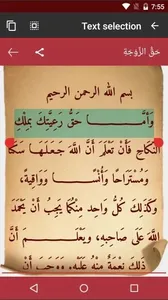 7:55
Text selection
حَقُّ الزَّوْجَةِ
بسم الله الرحمن الرحيم
وَأَمَّــا حَقُّ رَعِيَّتِكَ بِمِلْكِ
النِّكَاحِ فَأَنْ تَعْلَمَ أَنَّ اللَّهَ جَعَلَهَا سَكَنًا
وَمُسْتَرَاحًا وَأُنْسًــا وَوَاقِيَةً،
وَكَذَلِكَ كُلُّ وَاحِدٍ مِنْكُمَا يَجِبُ أَنْ يَحْمَدَ
اللَّهَ عَلَى صَاحِبِهِ، وَيَعْلَــمَ أَنَّ
ذَلِكَ نِعْمَةٌ مِنْهُ عَلَيْهِ. وَوَجَبَ أَنْ